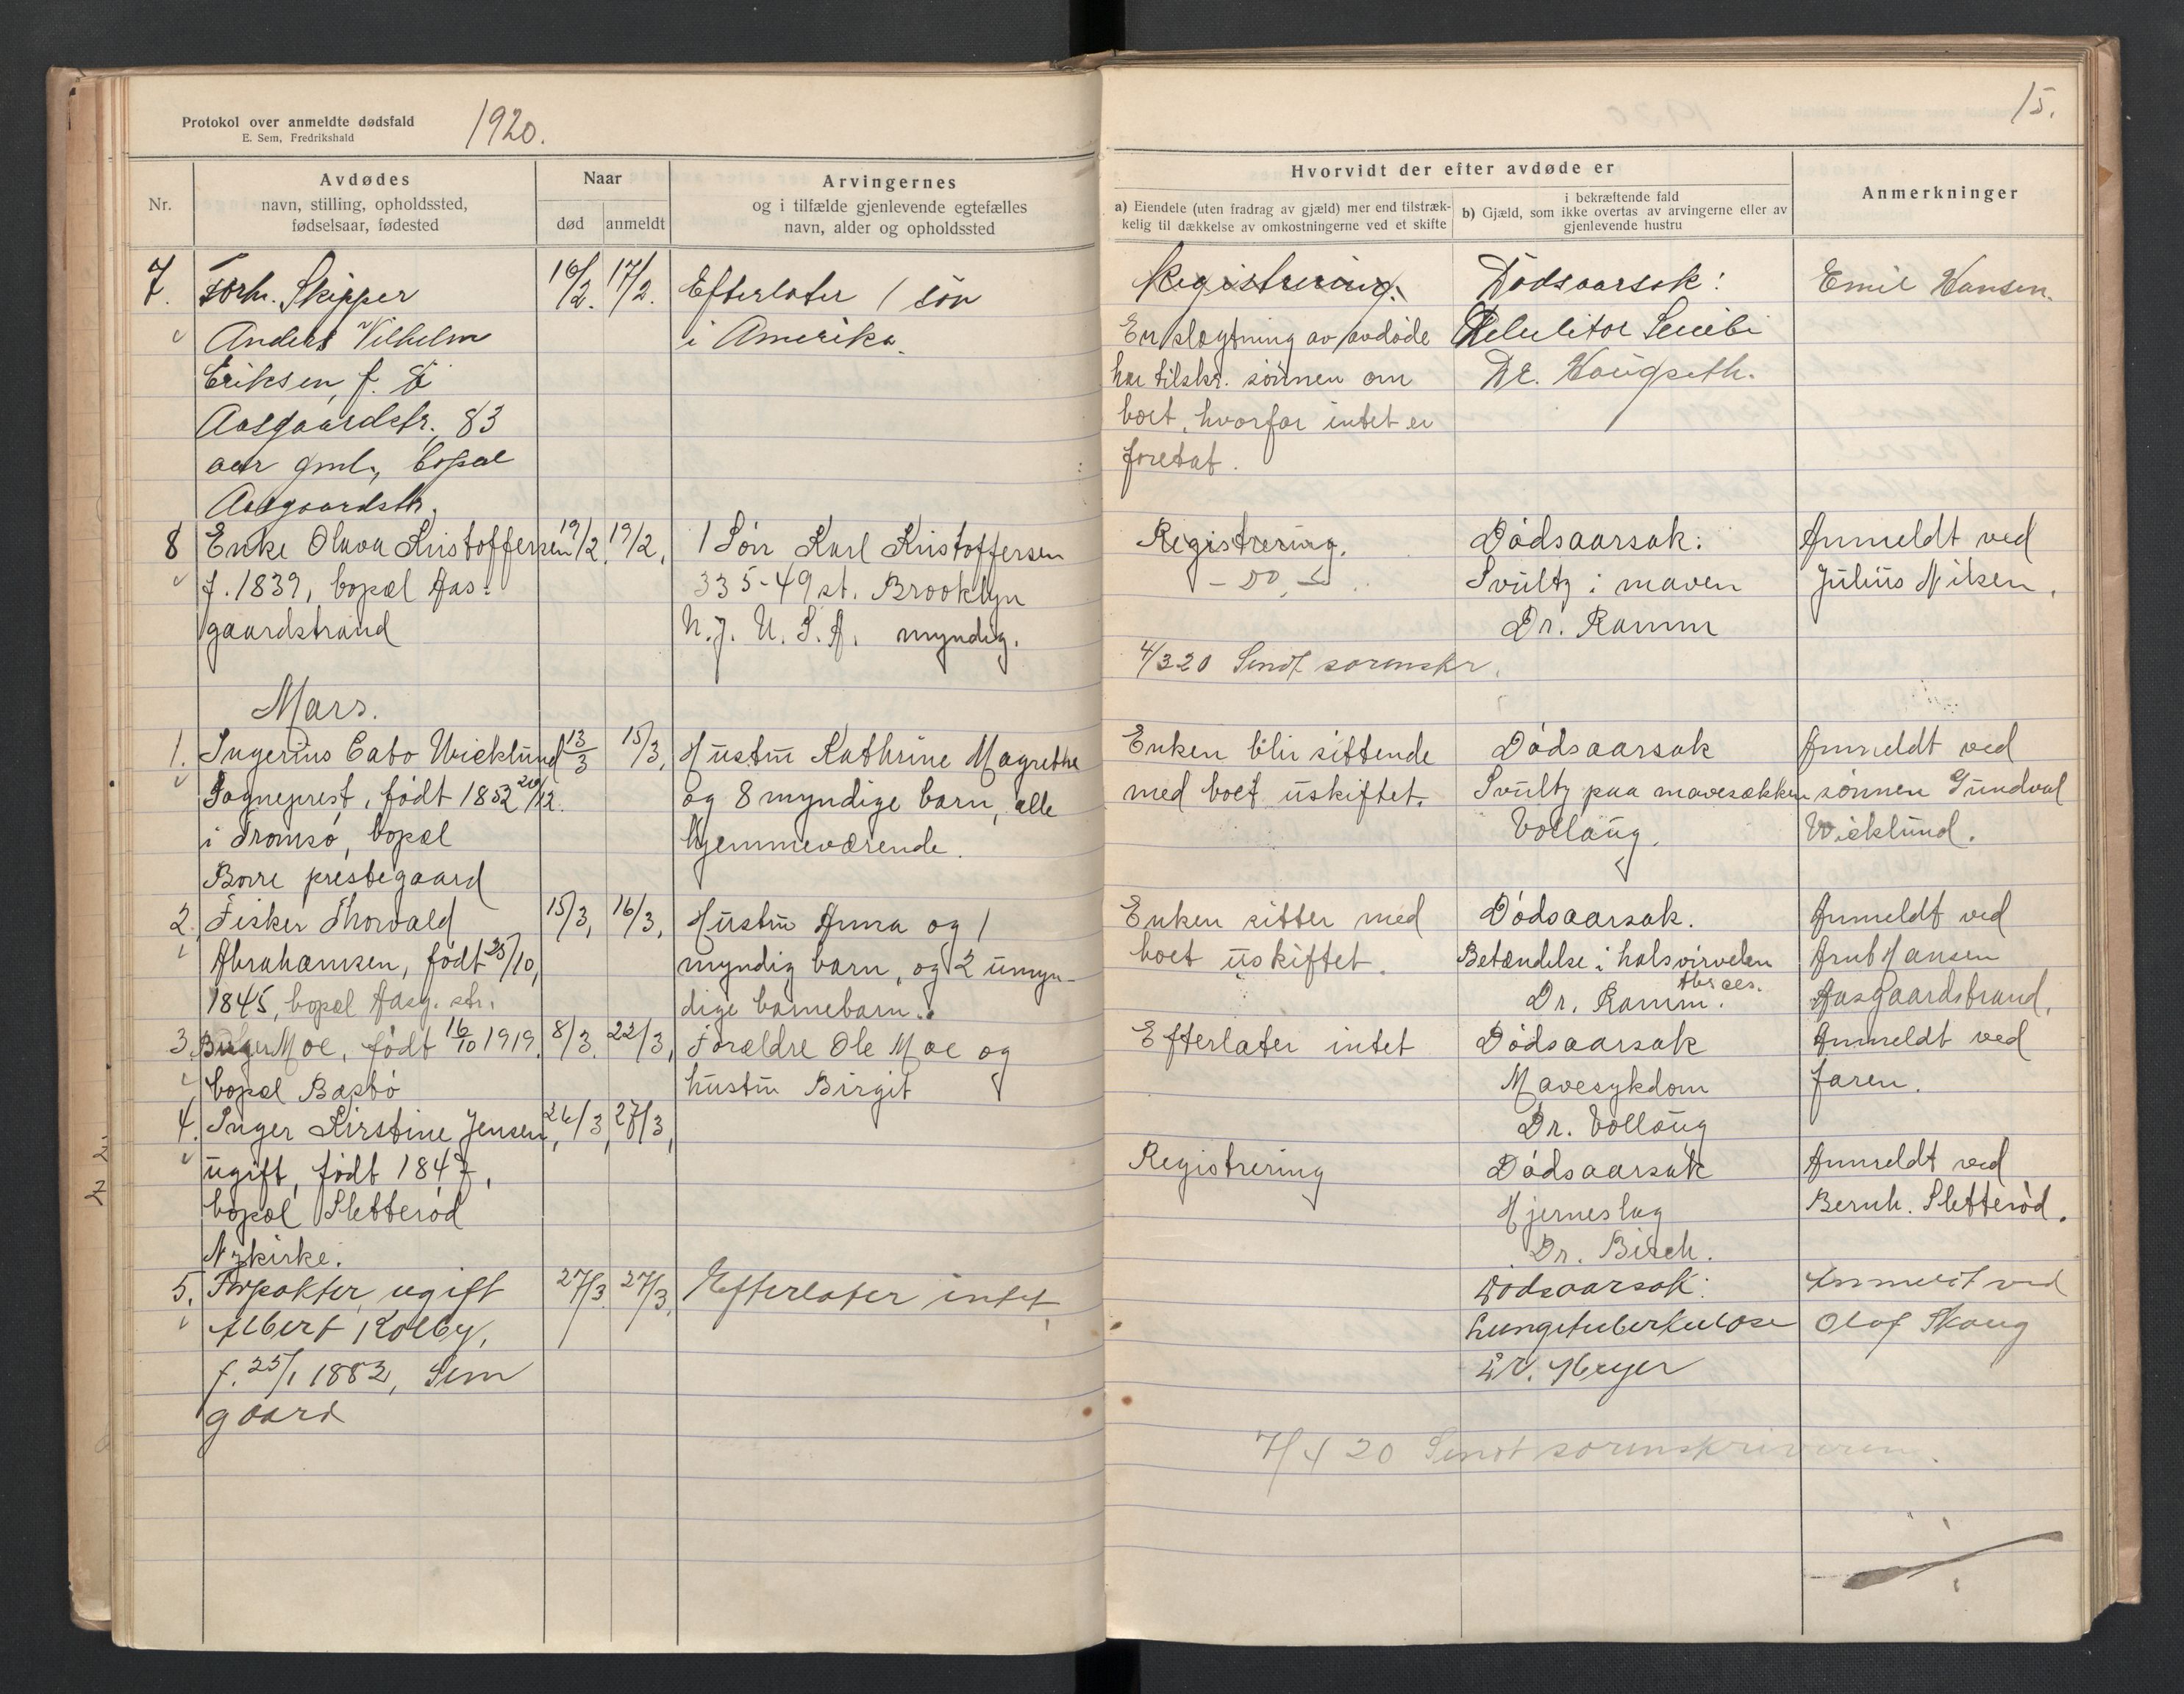 Protokol over anmeldte dødsfald
E. Sem, Fredrikshald
1920.
Nr.
Avdødes
navn, stilling, opholdssted,
fødselsaar, fødested
Naar
død
anmeldt
Arvingernes
og i tilfælde gjenlevende egtefælles
navn, alder og opholdssted
7.
Forh. Skipper
Anders Vilhelm
Eriksen, f. i
Aasgaardstr. 83
aar gml., bopæl
Aasgaardstr.
16/2.
17/2.
Efterlater 1 søn
i Amerika.
8
Enke Olava Kristoffersen
f. 1839, bopæl Aas-
gaardstrand
19/2.
19/2.
1 Søn Karl Kristoffersen
335-49 st. Brooklyn
N.J. U.S.A. myndig.
Mars.
1.
Ingerius Cato Wicklund
Sogneprest, født 1852 20/12.
i Tromsø, bopæl
Borre prestegaard
13/3
15/3,
Hustru Kathrine Magrethe
og 8 myndige barn, alle
hjemmeværende.
2.
Fisker Thorvald
Abrahamsen, født 25/10,
1845, bopæl Aasg. str.
15/3,
16/3,
Hustru Anna og 1
myndig barn, og 2 umyn-
dige barnebarn.
3.
Birger Moe, født 16/10 1919.
bopæl Bastø
8/3.
22/3,
Forældre Ole Moe og
hustru Birgit
4.
Inger Kirstine Jensen,
ugift, født 1847,
bopæl Sletterød
Nykirke.
26/3,
27/3,
5.
Forpakter, ugift
Albert Kolby,
f. 25/1 1882, Sem
gaard
27/3.
27/3.
Efterlater intet
2
2
15.
Hvorvidt der efter avdøde er
a) Eiendele (uten fradrag av gjæld) mer end tilstræk-
kelig til dækkelse av omkostningerne ved et skifte
i bekræftende fald
b) Gjæld, som ikke overtas av arvingerne eller av
gjenlevende hustru
Anmerkninger
Registrering.
En slegtning av avdøde
har tilskr. sønnen om
boet, hvorfor intet er
foretat.
Dødsaarsak:
Debilitas Senilis
Dr. Haugseth.
Emil Hansen.
Registrering.
Dødsaarsak:
Svulst i maven
Dr. Ramm
Anmeldt ved
Julius Nilsen.
4/3 20 Sendt sorenskr.
Enken blir sittende
med boet uskiftet.
Dødsaarsak
Svulst paa mavesækken
Vollaug.
Anmeldt ved
sønnen Gundval
Wicklund.
Enken sitter med
boet uskiftet.
Dødsaarsak.
Betændelse i halsvirvelen
Absces.
Dr. Ramm.
Anmeldt ved
Arnt Hansen
Aasgaardstrand.
Efterlater intet
Dødsaarsak
Mavesykdom
Dr. Vollaug
Anmeldt ved
faren.
Registrering
Dødsaarsak
Hjerneslag
Dr. Bisch.
Anmeldt ved
Bernh. Sletterød.
Dødsaarsak:
Lungetuberkulose
Dr. Heyer
Anmeldt ved
Olaf Skaug
7/4 20 Sendt sorenskriveren.